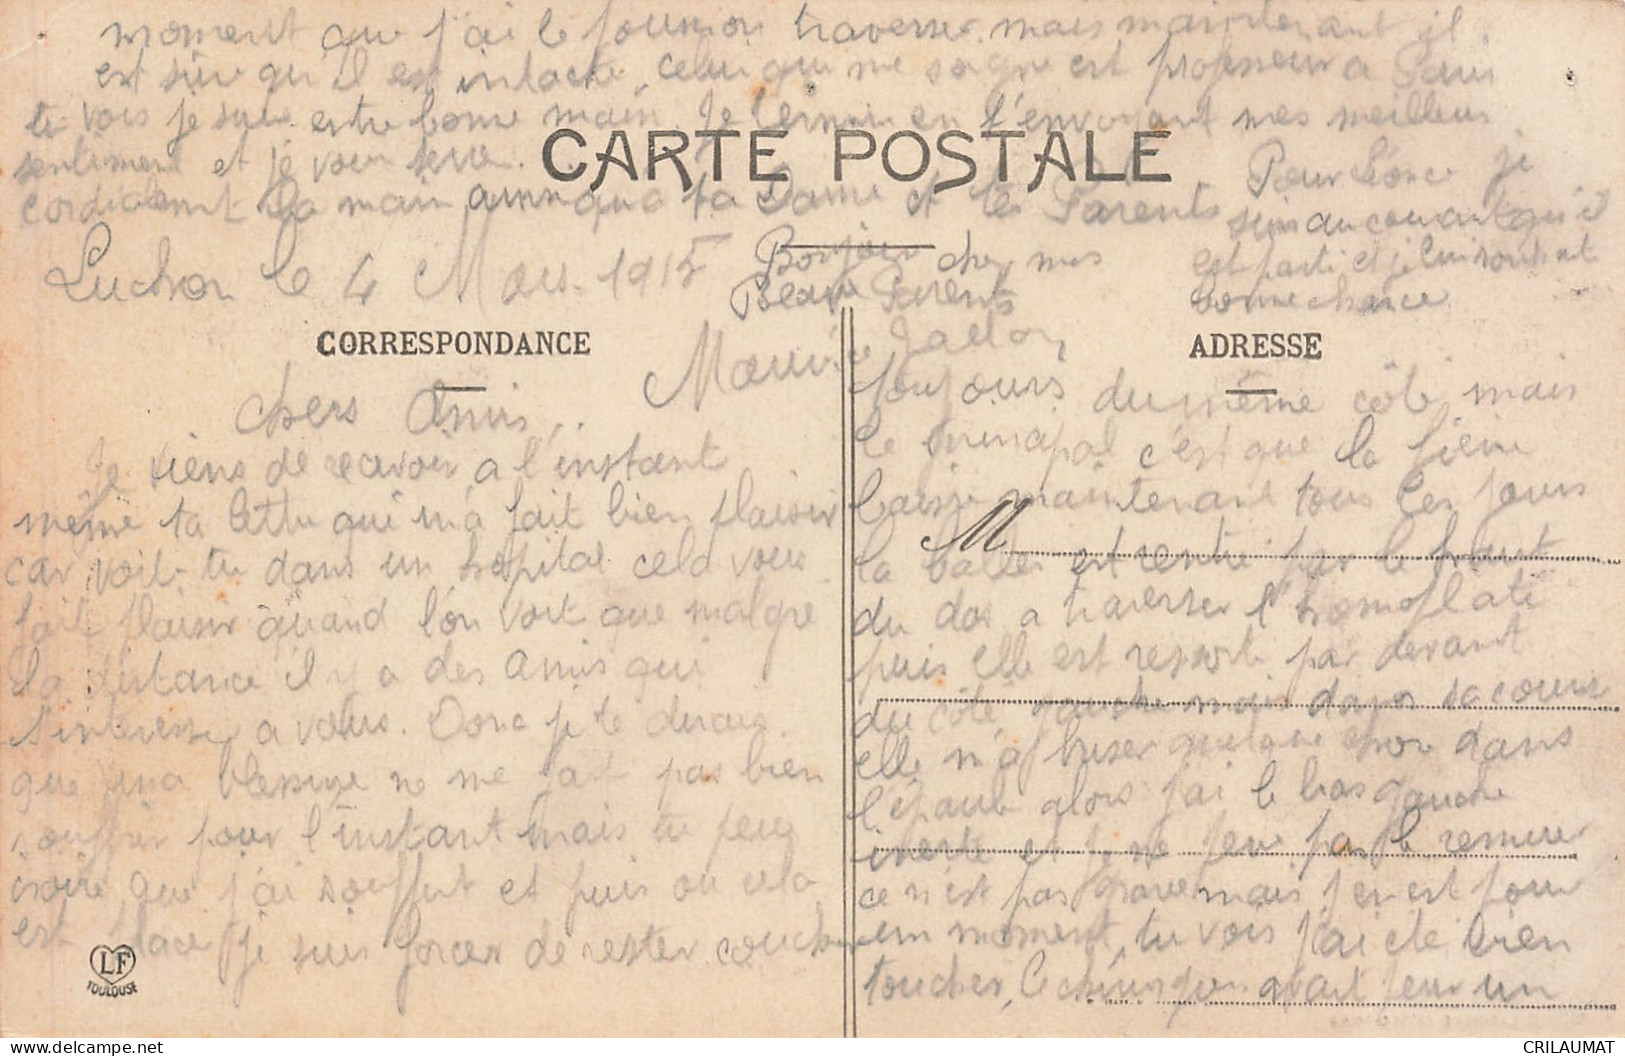 moment que j'ai le poumon traverser mais maintenant il
est sûre qu'il est intacte, celui qui me soigne est professeur a Paris
tu vois je suis entre bonne main. Je termine en t'envoyant mes meilleurs
sentiment et je vous serre
cordialement la main ainsi qua ta Dame et tes Parents
CARTE POSTALE
Pour Léonce je
suis au courant qu'il
est parti et je lui souhait
bonne chance
Luchon le 4 Mars 1915
Bonjour chez mes
Beaux Parents
CORRESPONDANCE
ADRESSE
Maurice
Chers Amis
Je viens de recevoir a l'instant
même ta lettre qui m'a fait bien plaisir
car voit-tu dans un hopital cela vous
fait plaisir quand l'on voit que malgre
la distance il y a des amis qui
s'interesse a vous. Donc je te dirais
que ma blessure ne me fait pas bien
souffrir pour l'instant mais tu peux
croire que j'ai souffert et puis ou cela
est placer je suis forcer de rester coucher
toujours du même côté mais
le principal c'est que la fièvre
baisse maintenant tous les jours
M
la balle est rentré par le haut
du dos a traverser l'homoplate
puis elle est ressorti par devant
du côté gauche mais dans sa course
elle m'a briser quelque chose dans
l'épaule alors j'ai le bras gauche
inerte et je ne peux pas le remuer
ce n'est pas grave mais j'en est pour
un moment, tu vois j'ai été bien
toucher, le chirurgien avait peur un
LF
TOULOUSE
CRILAUMAT